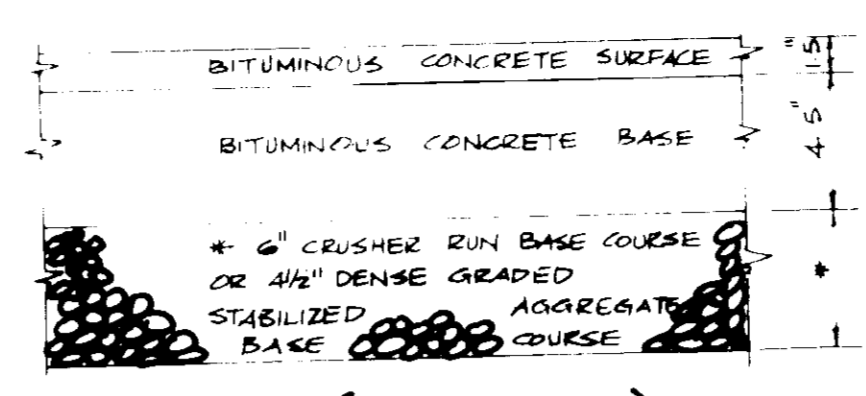 BITUMINOUS CONCRETE SURFACE
1.5"
BITUMINOUS CONCRETE BASE
4.5"
* 6" CRUSHER RUN BASE COURSE
OR 4½" DENSE GRADED
STABILIZED AGGREGATE
BASE COURSE
*